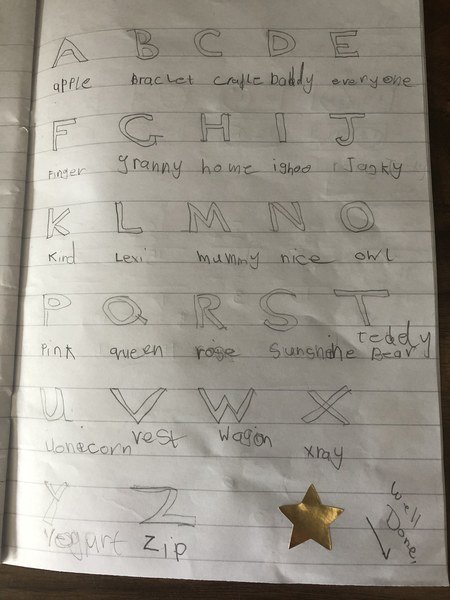 A B C D E
apple Bracelet Daddy everyone
F G H I J
Finger granny home
K L M N O
Kind Lexi mummy nice owl
P Q R S T
teddy
Pink queen rose Sunshine Bear
U V W X
uonecorn vest wagon xray
Y Z
yogurt zip
Well
Done!